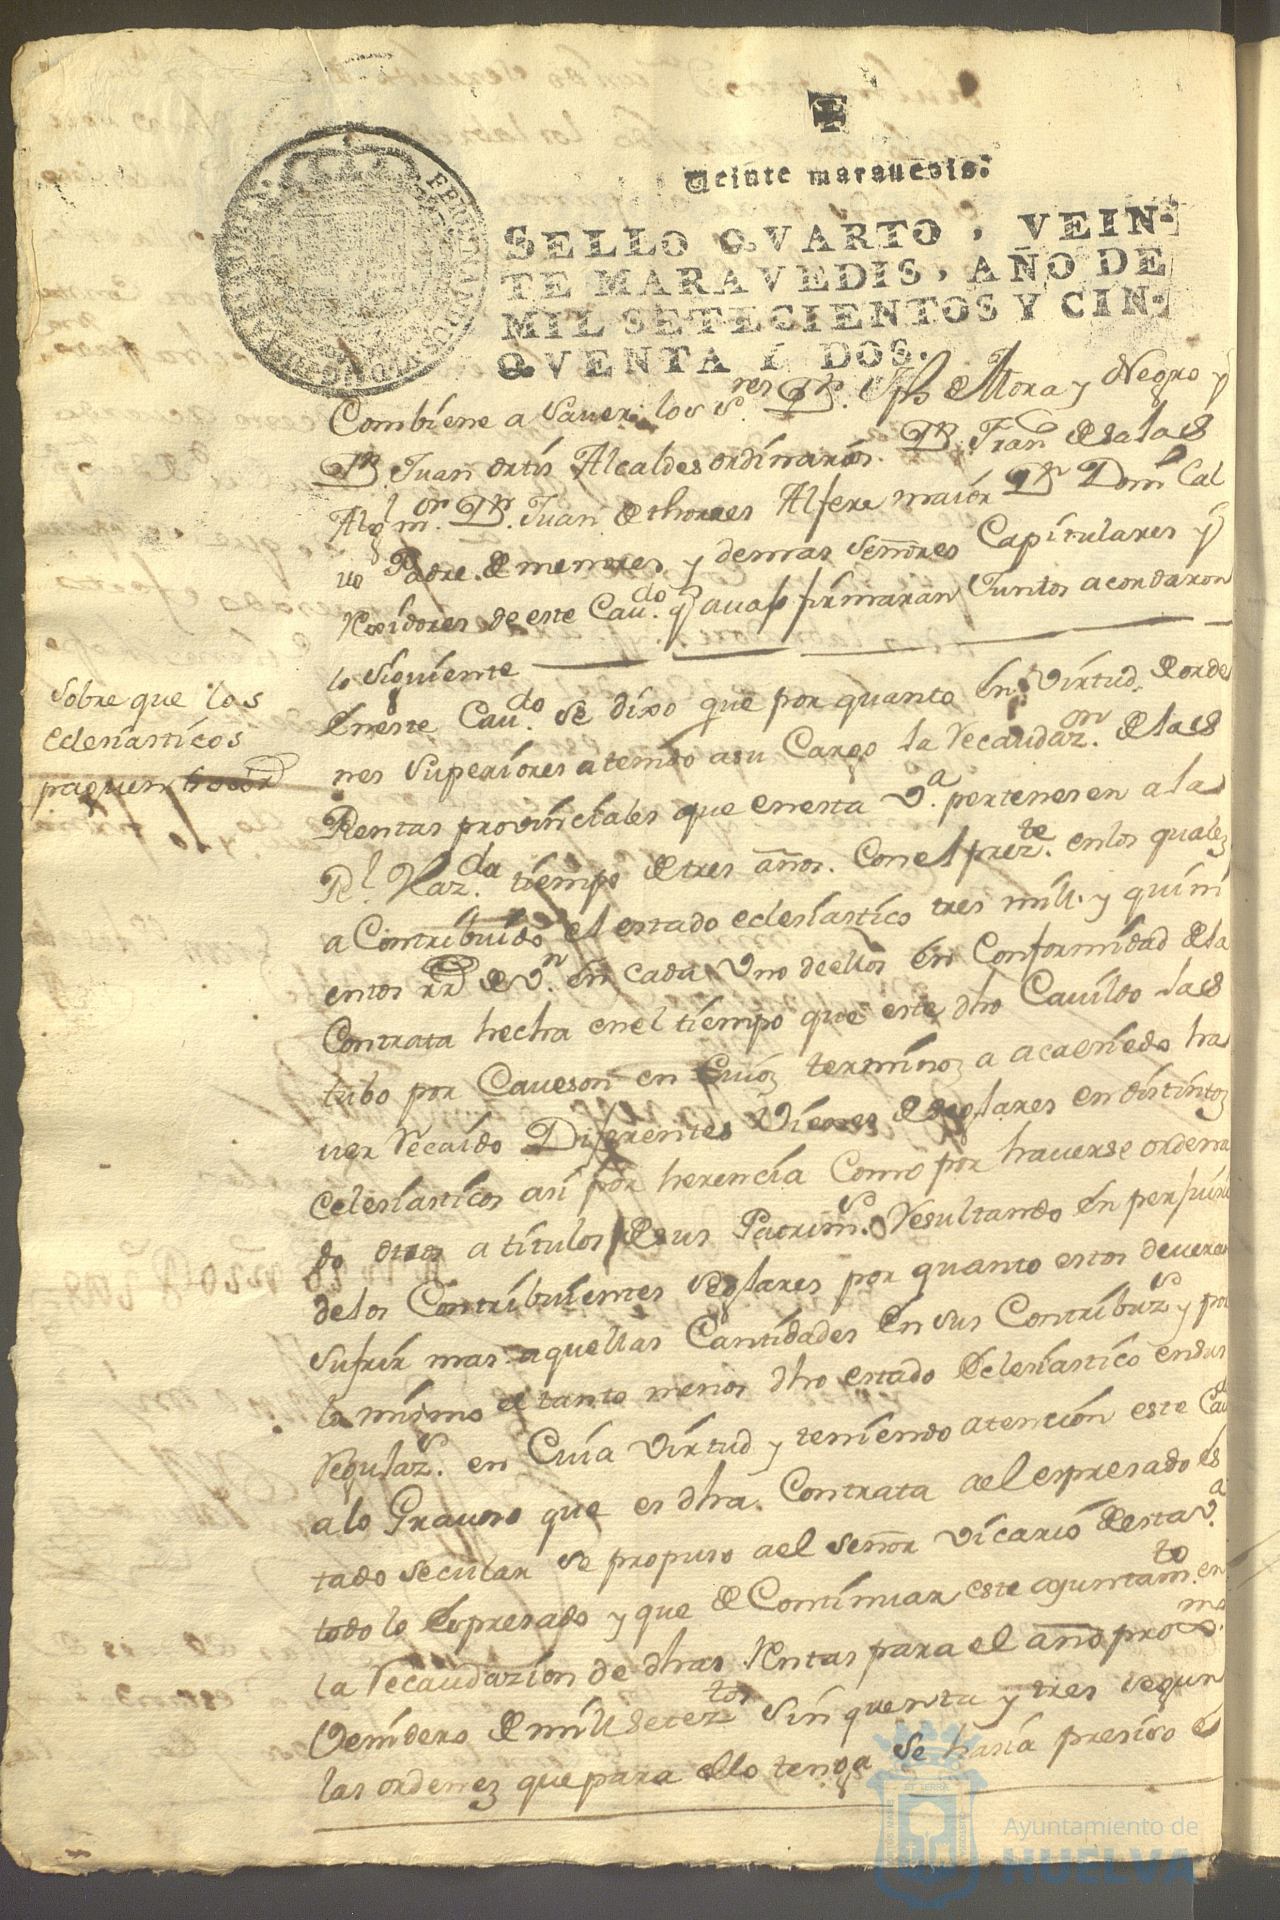 Veinte maravedis.
SELLO QVARTO, VEIN-
TE MARAVEDIS, AÑO DE
MIL SETECIENTOS Y CIN-
QVENTA Y DOS.
Combiene a saver los s.res Dn. Jph de Mora y Negro y
Dn. Juan ortis Alcaldes ordinarios. Dn. Fran.co de salas
Alg.l m.or Dn. Juan de thorres Alfere maior Dn Dom.o Cal
uo Padre de menores y demas señores Capitulares y
Rexidores de este Cau.do q auajo firmaran Juntos acordaron
lo siguiente
Sobre que los
eclesiasticos
paguen
Eneste Cau.do se dixo que por quanto en virtud de orde
nes superiores a tenido asu Cargo la recaudaz.on de las
Rentas provinciales que enesta v.a pertenesen a la
R.l Haz.da tiempo de tres años. Con el prez.te en los quales
a Contribuido el estado eclesiastico tres mill y quini
entos rr de v.n en cada uno de ellos en Conformidad de la
Contrata hecha en el tiempo que este dho Cavildo las
tubo por Caveson en Cuios terminos a acaenido ha
uer recaido Diferentes vienes de seglares en distintos
eclesiasticos asi por herencia Como por haverse ordena
do otros a titulos de sus Patrim.s Resultando en perjuici
de los Contribuientes seglares por quanto estos deveran
sufrir mas aquellas Cantidades en sus Contribuz.s y por
lo mismo de tanto menos dho estado Eclesiastico en sus
Regulaz.s en Cuia virtud y teniendo atencion este Cau.do
a lo Gravoso que es dha Contrata ael espresado es
tado secular se propuso ael señor vicario de esta v.a
todo lo Espresado y que de Continuar este ayuntam.to en
la Recaudazion de dhas Rentas para el año prox.mo
Venidero de mill setez.tos sinquenta y tres segun
las ordenes que para ello tenga se haria presiso el
Ayuntamiento de
HUELVA